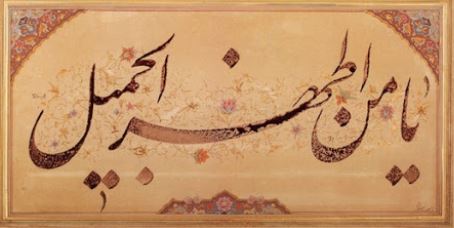 یا من اظهر الجمیل